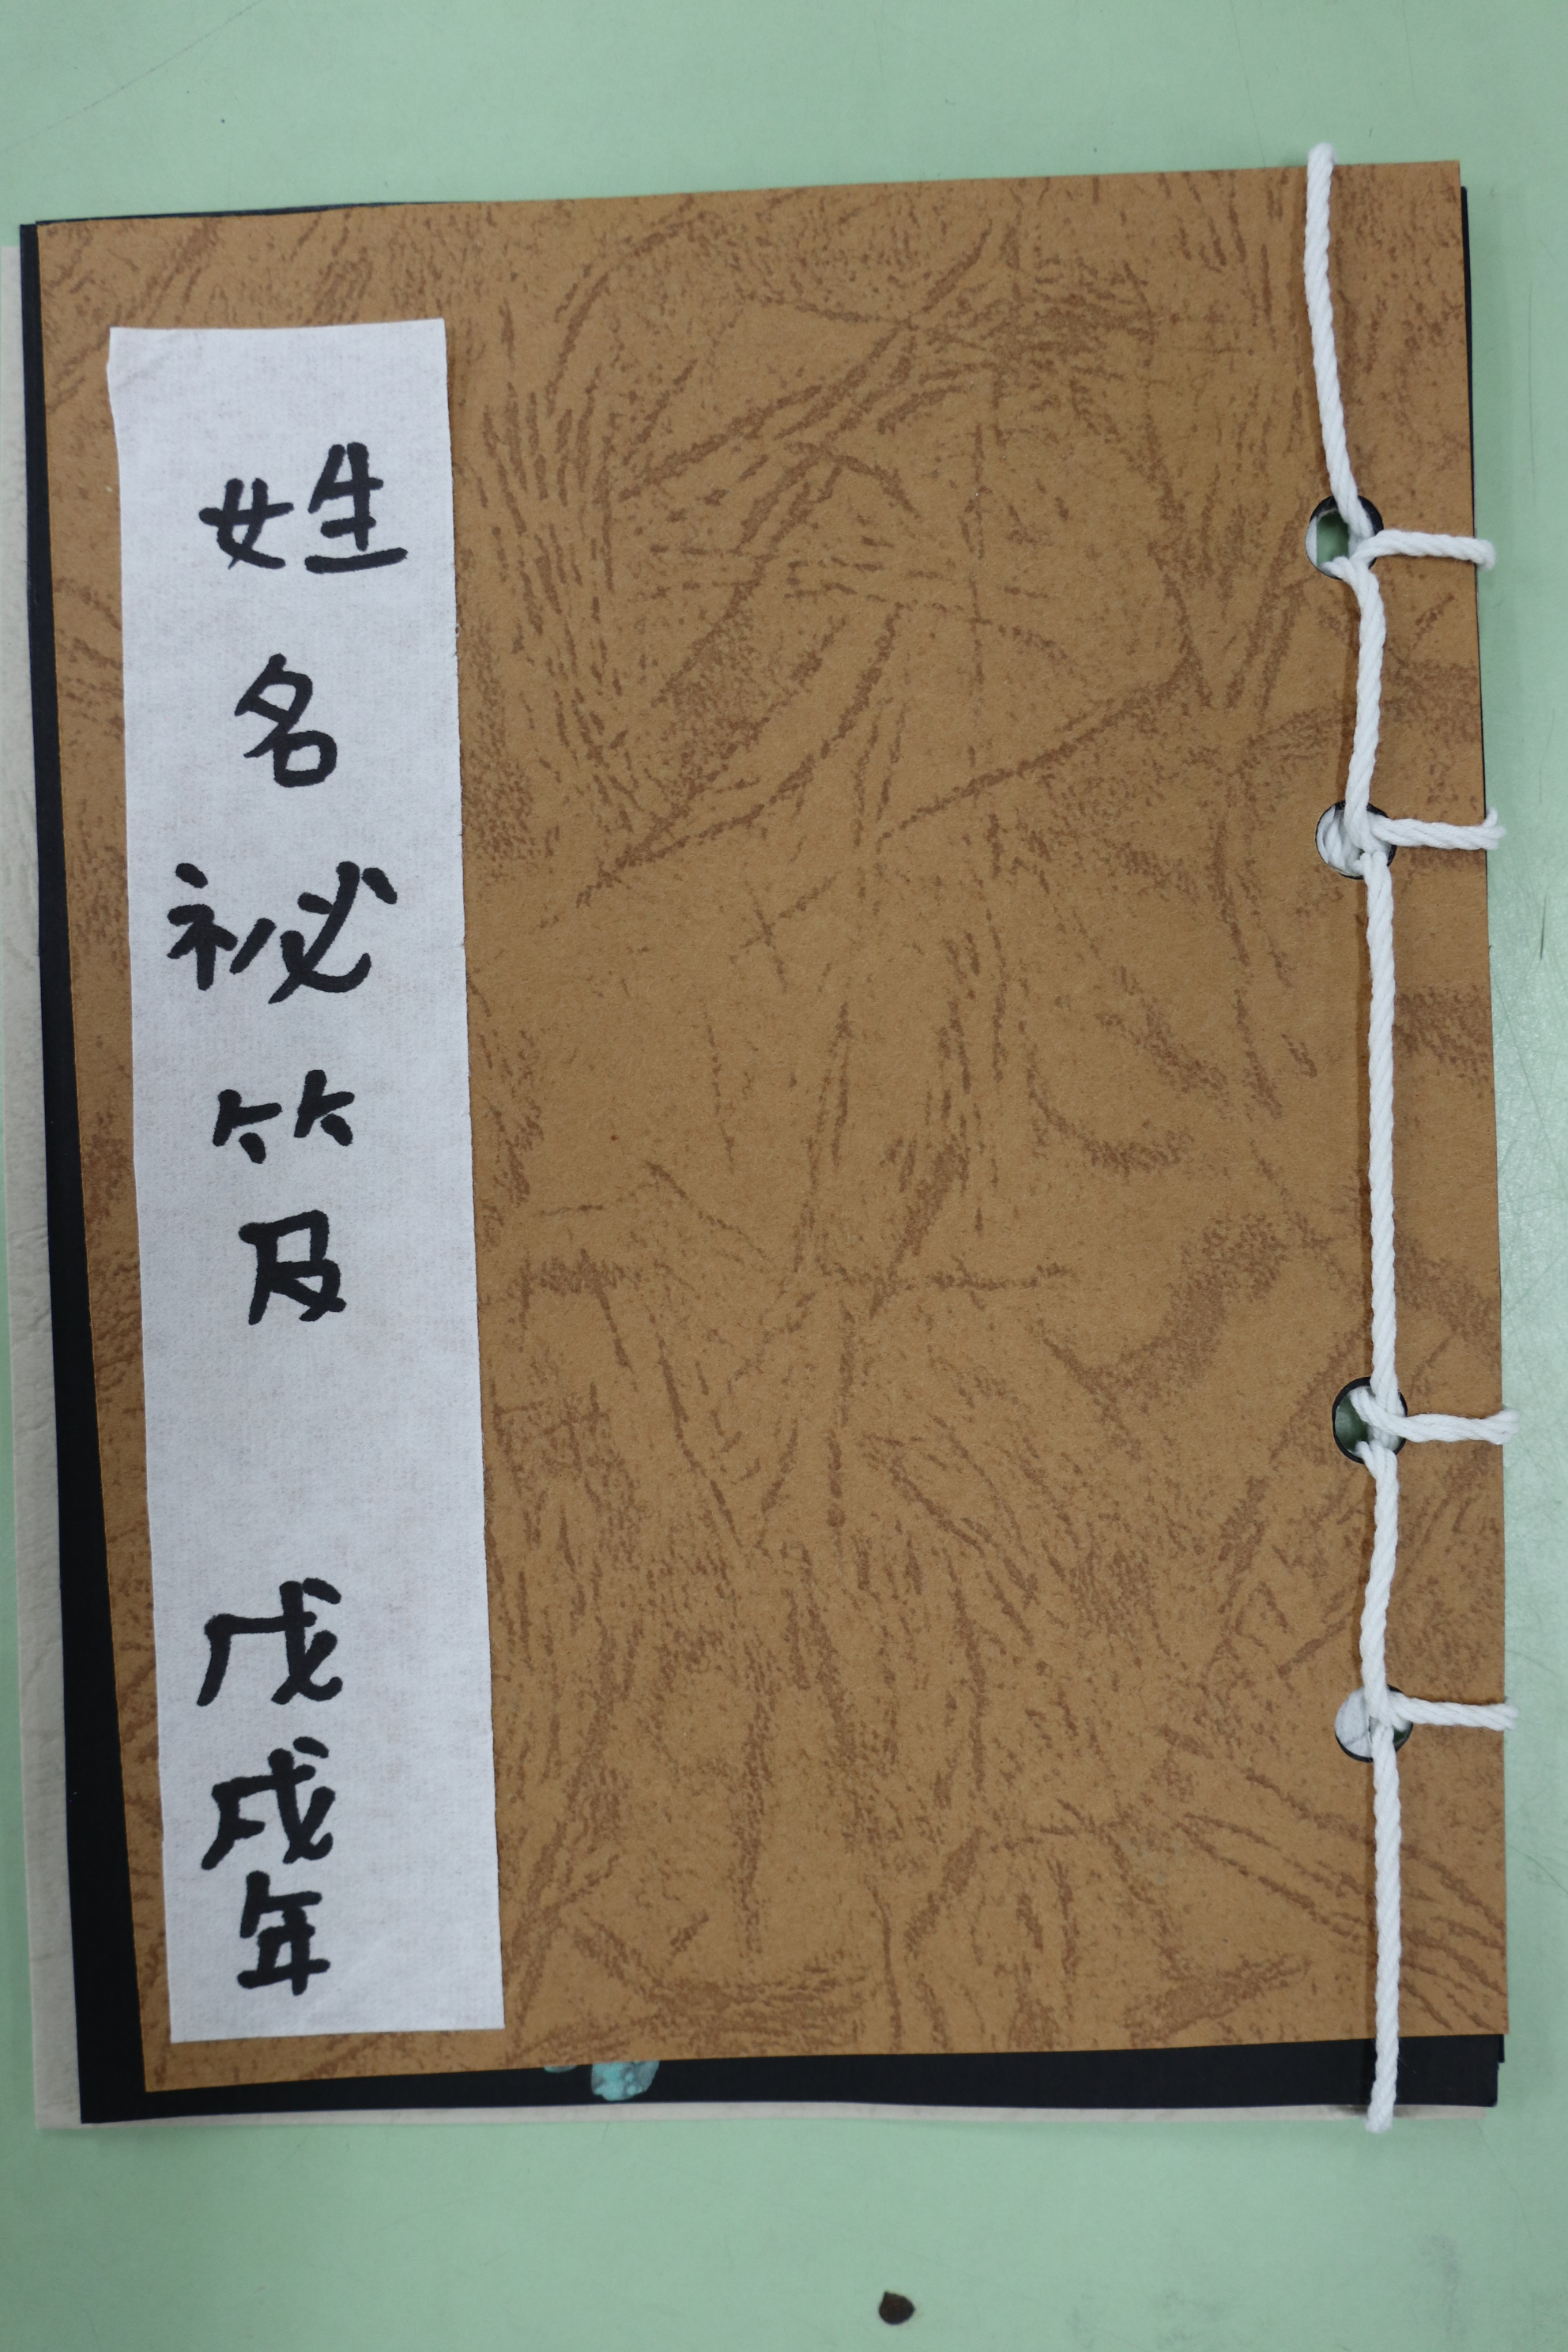 姓名祕笈
戊戌年